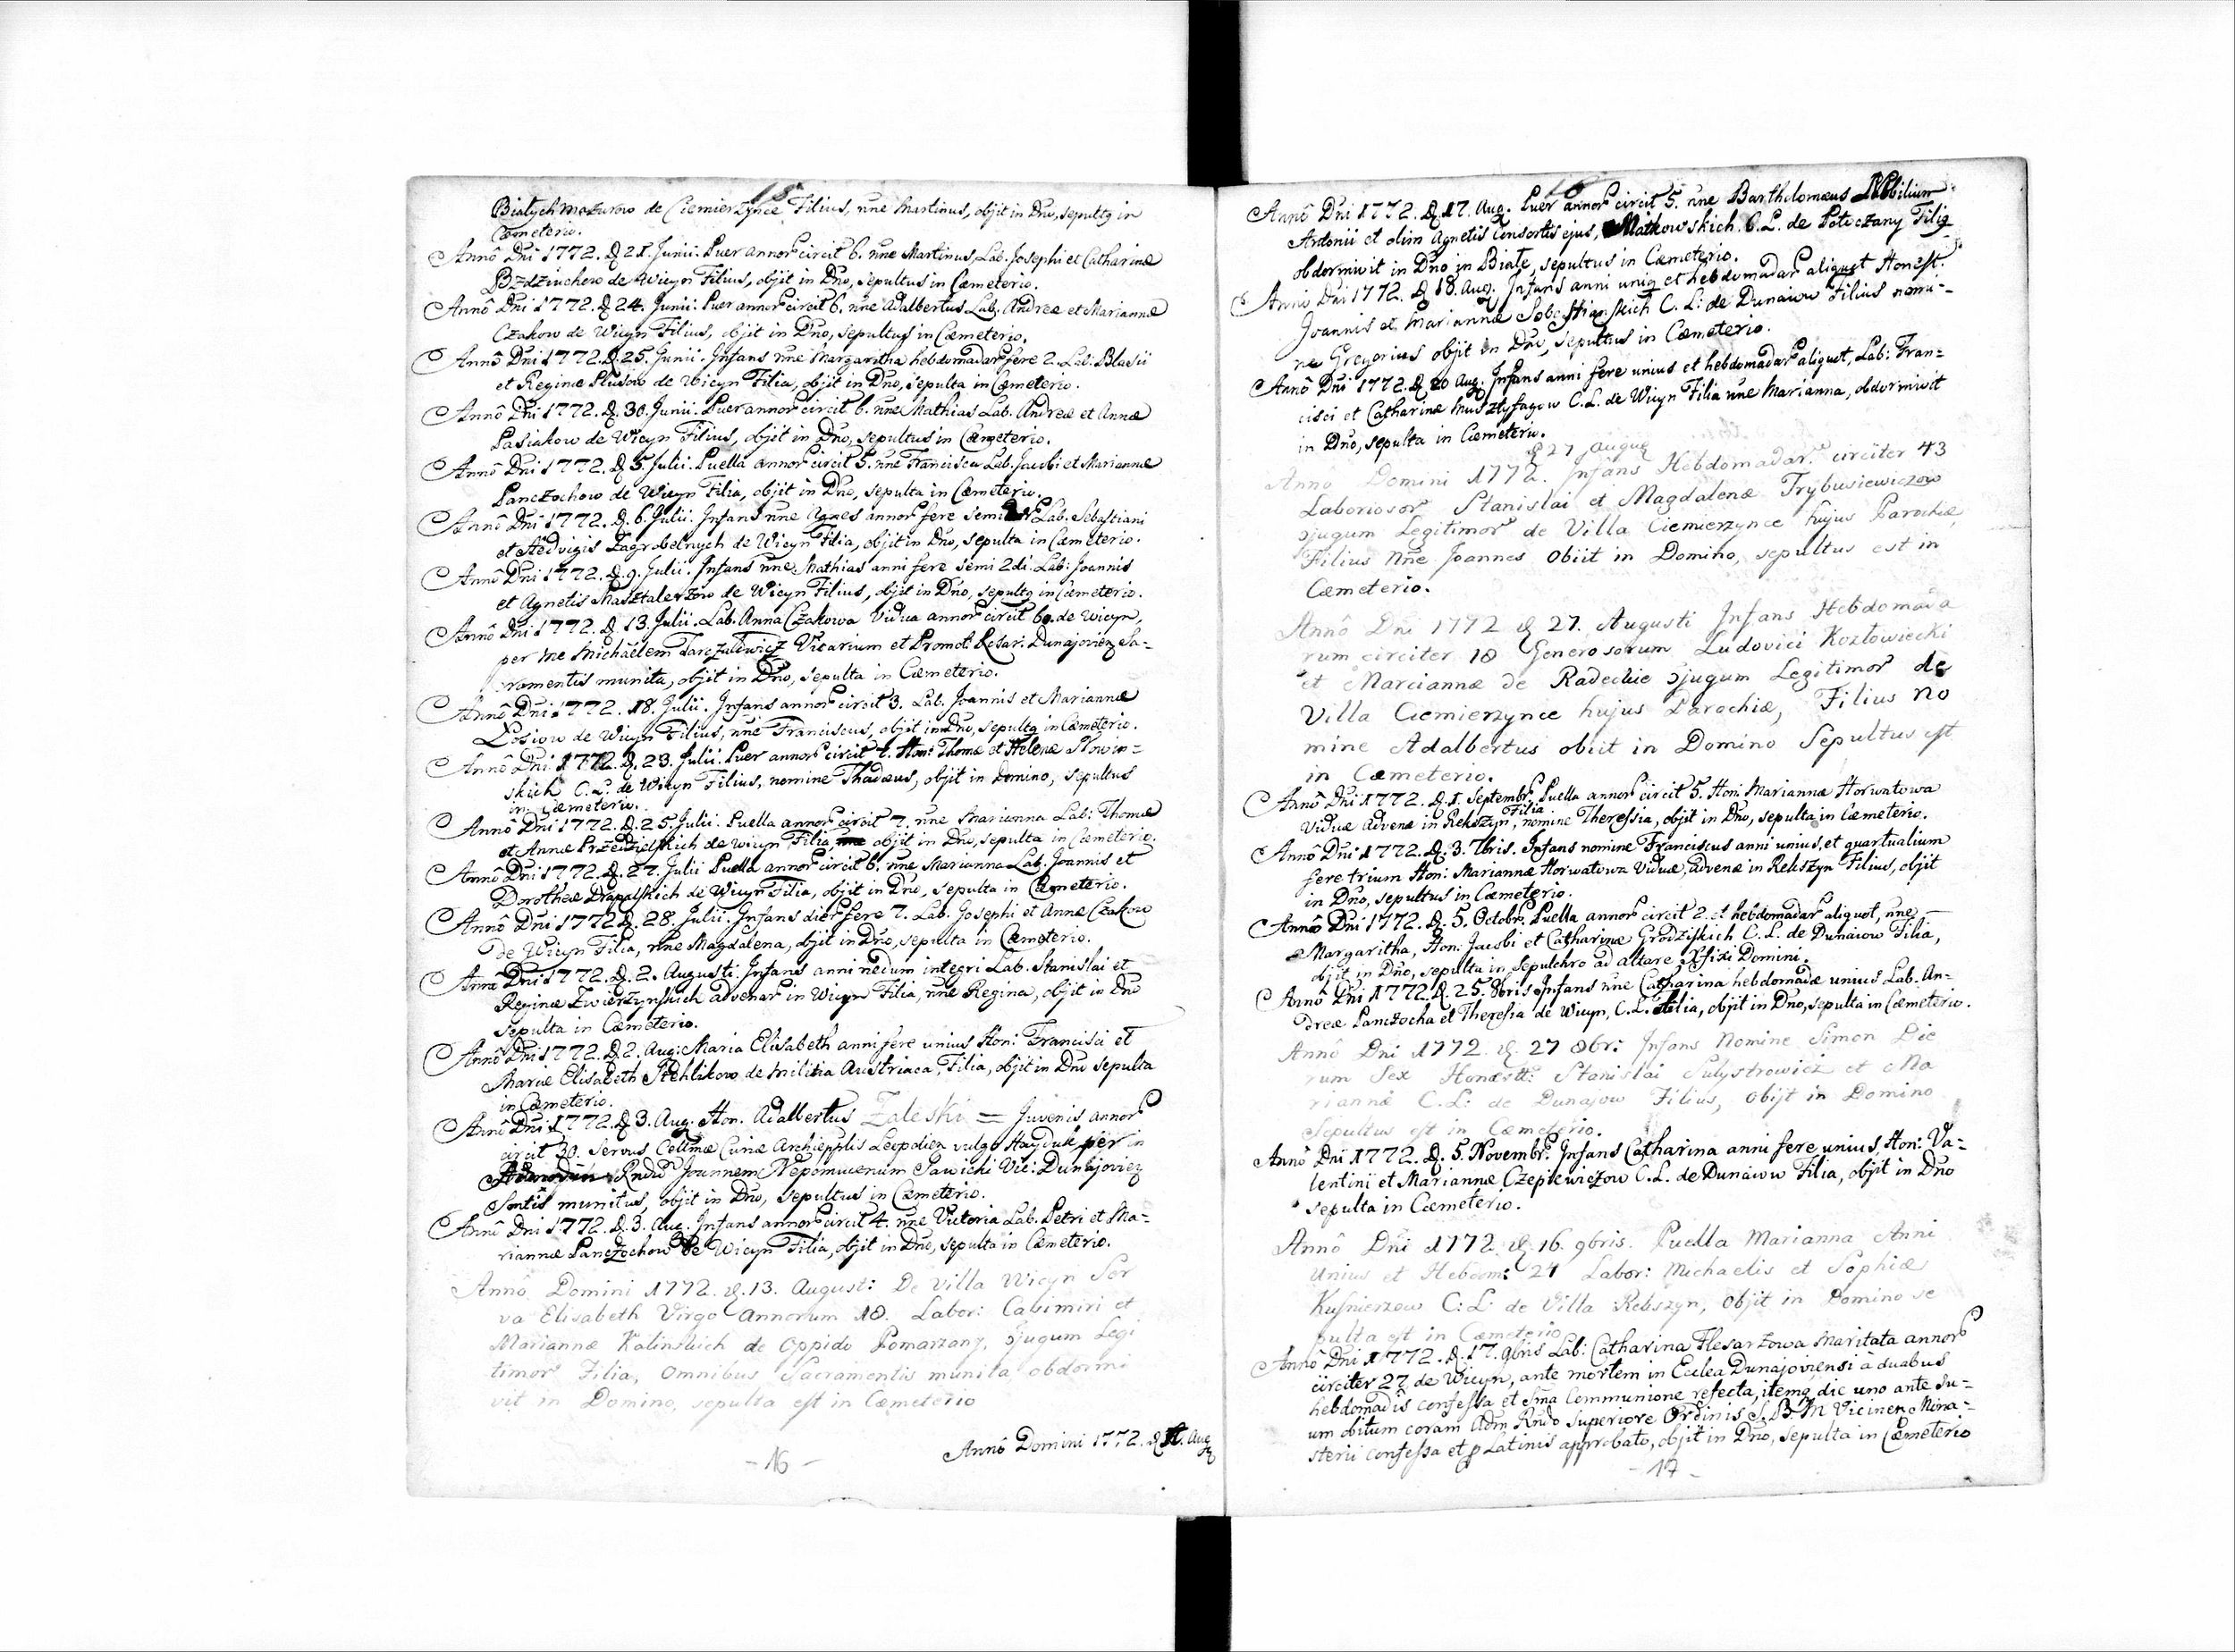 15
Białychmazurow de Ciemierzynce Filius, nne Martinus, objit in Dno, sepultg in
Cæmeterio.
Annô Dni 1772. D. 21. Junii. Puer annor circit 6. nne Martinus, Lab. Josephi et Catharinæ
Bzdziuchow de Wicyn Filius, objit in Dno, sepultus in Cæmeterio.
Annô Dni 1772. D. 24. Junii. Puer annor circit 6. nne Adalbertus Lab. Andreæ et Mariannæ
Czakow de Wicyn Filius, objit in Dno, sepultus in Cæmeterio.
Annô Dni 1772. D. 25. Junii. Infans nne Margaritha hebdomadar fere 2. Lab. Blasii
et Reginæ Plusow de Wicyn Filia, objit in Dno, sepulta in Cæmeterio.
Annô Dni 1772. D. 30. Junii. Puer annor circit 6. nne Mathias Lab. Andreæ et Annæ
Pasiakow de Wicyn Filius, objit in Dno, sepultus in Cæmeterio.
Annô Dni 1772. D. 5. Julii. Puella annor circit 5. nne Francisca Lab. Jacobi et Mariannæ
Panczochow de Wicyn Filia, objit in Dno, sepulta in Cæmeterio.
Annô Dni 1772. D. 6. Julii. Infans nne Agnes annor fere semi Lab. Sebastiani
et Hedvigis Zagrobelnych de Wicyn Filia, objit in Dno, sepulta in Cæmeterio.
Annô Dni 1772. D. 9. Julii. Infans nne Mathias anni fere semi 2di. Lab: Joannis
et Agnetis Masztalerzow de Wicyn Filius, objit in Dno, sepultg in Cæmeterio.
Annô Dni 1772. D. 13. Julii. Lab. Anna Czakowa Vidua annor circit 60. de Wicyn,
per me Michäelem Tarczulewicz Vicarium et Promot: Rosar: Dunajovien Sa-
cramentis munita, objit in Dno, sepulta in Cæmeterio.
Annô Dni 1772. 18. Julii. Infans annor circit 3. Lab. Joannis et Mariannæ
Łosiow de Wicyn Filius, nne Franciscus, objit in Dno, sepultg in Cæmeterio.
Annô Dni 1772. D. 23. Julii. Puer annor circit 7. Hon: Thomæ et Helenæ
skich C. L. de Wicyn Filius, nomine Thadæus, objit in Domino, sepultus
in Cæmeterio.
Annô Dni 1772. D. 25. Julii. Puella annor circit 7. nne Marianna Lab: Thomæ
et Annæ de Wicyn Filia, objit in Dno, sepulta in Cæmeterio.
Annô Dni 1772. D. 27. Julii Puella annor circit 6. nne Marianna Lab. Joannis et
Dorotheæ Drapalskich de Wicyn Filia, objit in Dno, sepulta in Cæmeterio.
Annô Dni 1772 D. 28. Julii. Infans dier fere 7. Lab. Josephi et Annæ Czakow
de Wicyn Filia, nne Magdalena, objit in Dno, sepulta in Cæmeterio.
Dni 1772. D. 2. Augusti. Infans anni nedum integri Lab. Stanislai et
Reginæ Zwierzynskich advenar in Wicyn Filia, nne Regina, objit in Dno
sepulta in Cæmeterio.
Annô Dni 1772. D 2. Aug: Maria Elisabeth anni fere unius Hon: Francisci et
Mariæ Elisabeth Stehlikow de militia Austriaca, Filia, objit in Dno sepulta
in Cæmeterio.
Annô Dni 1772. D 3. Aug. Hon. Adalbertus Zaleski = Juvenis annor
circit 30. Servus Celsmæ Curiæ Archieppalis Leopolien vulgo Hayduk, per
Rndum Joannem Nepomucenum Sawicki Vic: Dunajovien
Sontis munitus, objit in Dno, sepultus in Cæmeterio.
Annô Dni 1772. D. 3. Aug. Infans annor circit 4. nne Victoria Lab. Petri et Ma-
riannæ Panczochow de Wicyn Filia, objit in Dno, sepulta in Cæmeterio.
Anno Domini 1772. D. 13. August: De Villa Wicyn Ser
va Elisabeth Virgo Annorum 18. Labor: Casimiri et
Mariannæ Kalinskich de Oppido Pomarzany, ɔjugum Legi
timor Filia, Omnibus Sacramentis munita obdormi
vit in Domino, sepulta est in Cæmeterio
Annô Domini 1772. D Aug
- 16 -
16
Annô Dni 1772. D. 17. Aug. Puer annor circit 5. nne Bartholomæus Nobilium
Antonii et olim Agnetis Consortis ejus, Matkowskich C. L. de Potoczany Filig
obdormivit in Dno in Biale, sepultus in Cæmeterio.
Annô Dni 1772. D 18. Aug. Infans anni unig et hebdomadar aliquot Honest:
Joannis et Mariannæ Sobestianskich C. L: de Dunaiow Filius nomi-
ne Gregorius objit in Dno, sepultus in Cæmeterio.
Annô Dni 1772. D 20 Aug: Infans anni fere unius et hebdomadar aliquot, Lab: Fran=
cisci et Catharinæ C. L. de Wicyn Filia nne Marianna, obdormivit
in Dno, sepulta in Cæmeterio.
D 27 Augug
Anno Domini 1772. Infans Hebdomadar circiter 43
Laboriosor Stanislai et Magdalenæ Trybusiewiczow
ɔjugum Legitimor de Villa Ciemierzynce hujus Parochiæ,
Filius Nne Joannes Obiit in Domino, sepultus est in
Cæmeterio.
Annô Dni 1772 D 27. Augusti Infans Hebdomada
rum circiter 18 Generosorum Ludovici Kozłowiecki
et Marciannæ de Radeckie ɔjugum Legitimor de
Villa Ciemierzynce hujus Parochiæ, Filius No
mine Adalbertus obiit in Domino Sepultus est
in Cæmeterio.
Annô Dni 1772. D. 1. Septembr. Puella annor circit 5. Hon: Mariannæ Horwatowa
Viduæ Advenæ in Rekszyn Filia, nomine Theressia, objit in Dno, sepulta in Cæmeterio.
Annô Dni 1772. D. 3. 7bris. Infans nomine Franciscus anni unius, et quartualium
fere trium Hon: Mariannæ Horwatowa Viduæ, Advenæ in Rekszyn Filius, objit
in Dno, sepultus in Cæmeterio.
Annô Dni 1772. D. 5. Octobr. Puella annor circit 2. et hebdomadar aliquot, nne
Margaritha, Hon: Jacobi et Catharinæ Grodziskich C. L. de Dunaiow Filia,
objit in Dno, sepulta in sepulchro ad altare Domini.
Annô Dni 1772. D. 25. 8bris Infans nne Catharina hebdomadæ unius Lab. An-
dreæ Panczocha et Theresia de Wicyn, C. L. Filia, objit in Dno, sepulta in Cæmeterio.
Annô Dni 1772. D. 27 8br: Infans Nomine Simon Die
rum Sex Honestt: Stanislai Sulystrowicz et Ma
riannæ C. L: de Dunajow Filius, Obijt in Domino
Sepultus est in Cæmeterio.
Annô Dni 1772. D. 5. Novembr. Infans Catharina anni fere unius, Hon: Va=
lentini et Mariannæ Czepkewiczow C. L. de Dunaiow Filia, objit in Dno
sepulta in Cæmeterio.
Annô Dni 1772. D. 16. 9bris. Puella Marianna Anni
Unius et Hebdom: 24 Labor: Michaelis et Sophiæ
Kusnierzow C: L: de Villa Rekszyn, Objit in Domino se
pulta est in Cæmeterio
Annô Dni 1772. D. 17. 9bris Lab: Catharina Flesarzowa Maritata annor
circiter 27 de Wicyn, ante mortem in Ecclea Dunajoviensi à duabus
hebdomadis confessa et Sma Communione refecta, itemq die uno ante su=
um obitum coram Adm Rndo Superiore Ordinis S. B. M Vicinen Mina=
sterii confessa et p Latinis approbato, objit in Dno, sepulta in Cæmeterio
- 17 -